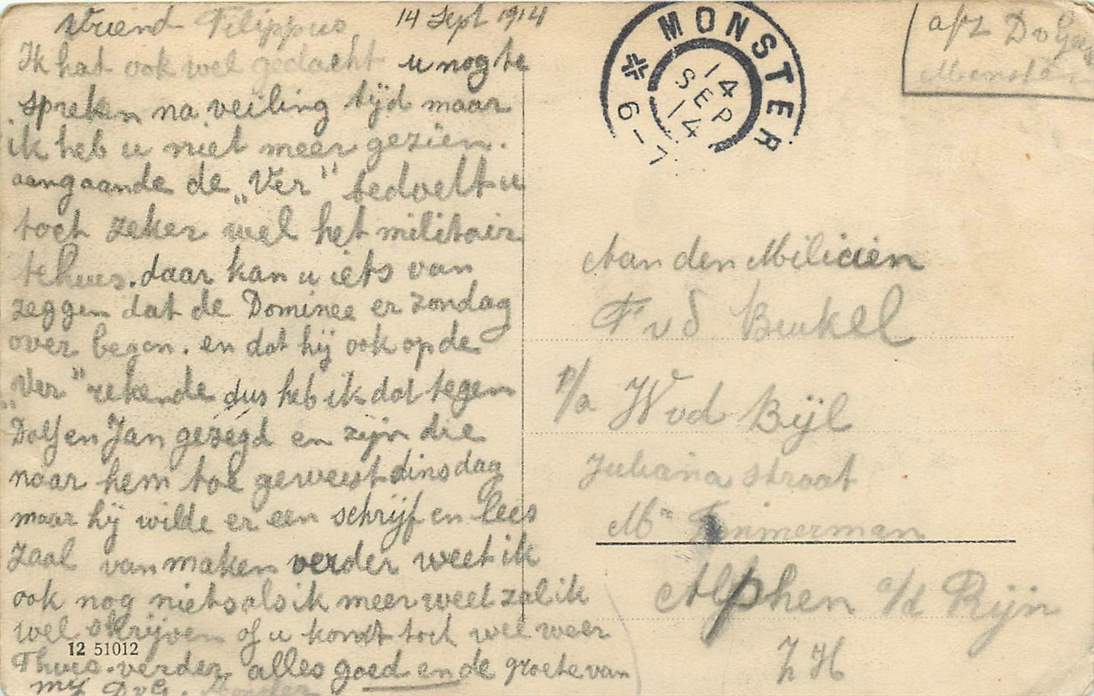 vriend Filippus 14 Sept 1914
Ik hat ook wel gedacht u nog te
spreken na veiling tijd maar
ik heb u niet meer gezien.
aangaande de „Ver" bedoelt u
toch zeker wel het militair
tehuis. daar kan u iets van
zeggen dat de Dominee er zondag
over begon. en dat hij ook op de
„Ver" rekende dus heb ik dat tegen
Dolf en Jan gezegd en zijn die
naar hem toe geweest dinsdag
maar hij wilde er een schrijf en lees
zaal van maken verder weet ik
ook nog niets als ik meer weet zal ik
wel skrijven of u komt toch wee weer
Thuis. verder alles goed en de groete van
mij D.v.G.
12 51012
MONSTER
14
SEP
14
6-7
afz D v
Monster
Aan den Milicien
F v d Beukel
p/a W v d Bijl
Juliana straat
Mr Timmerman
Alphen a/d Rijn
Z H